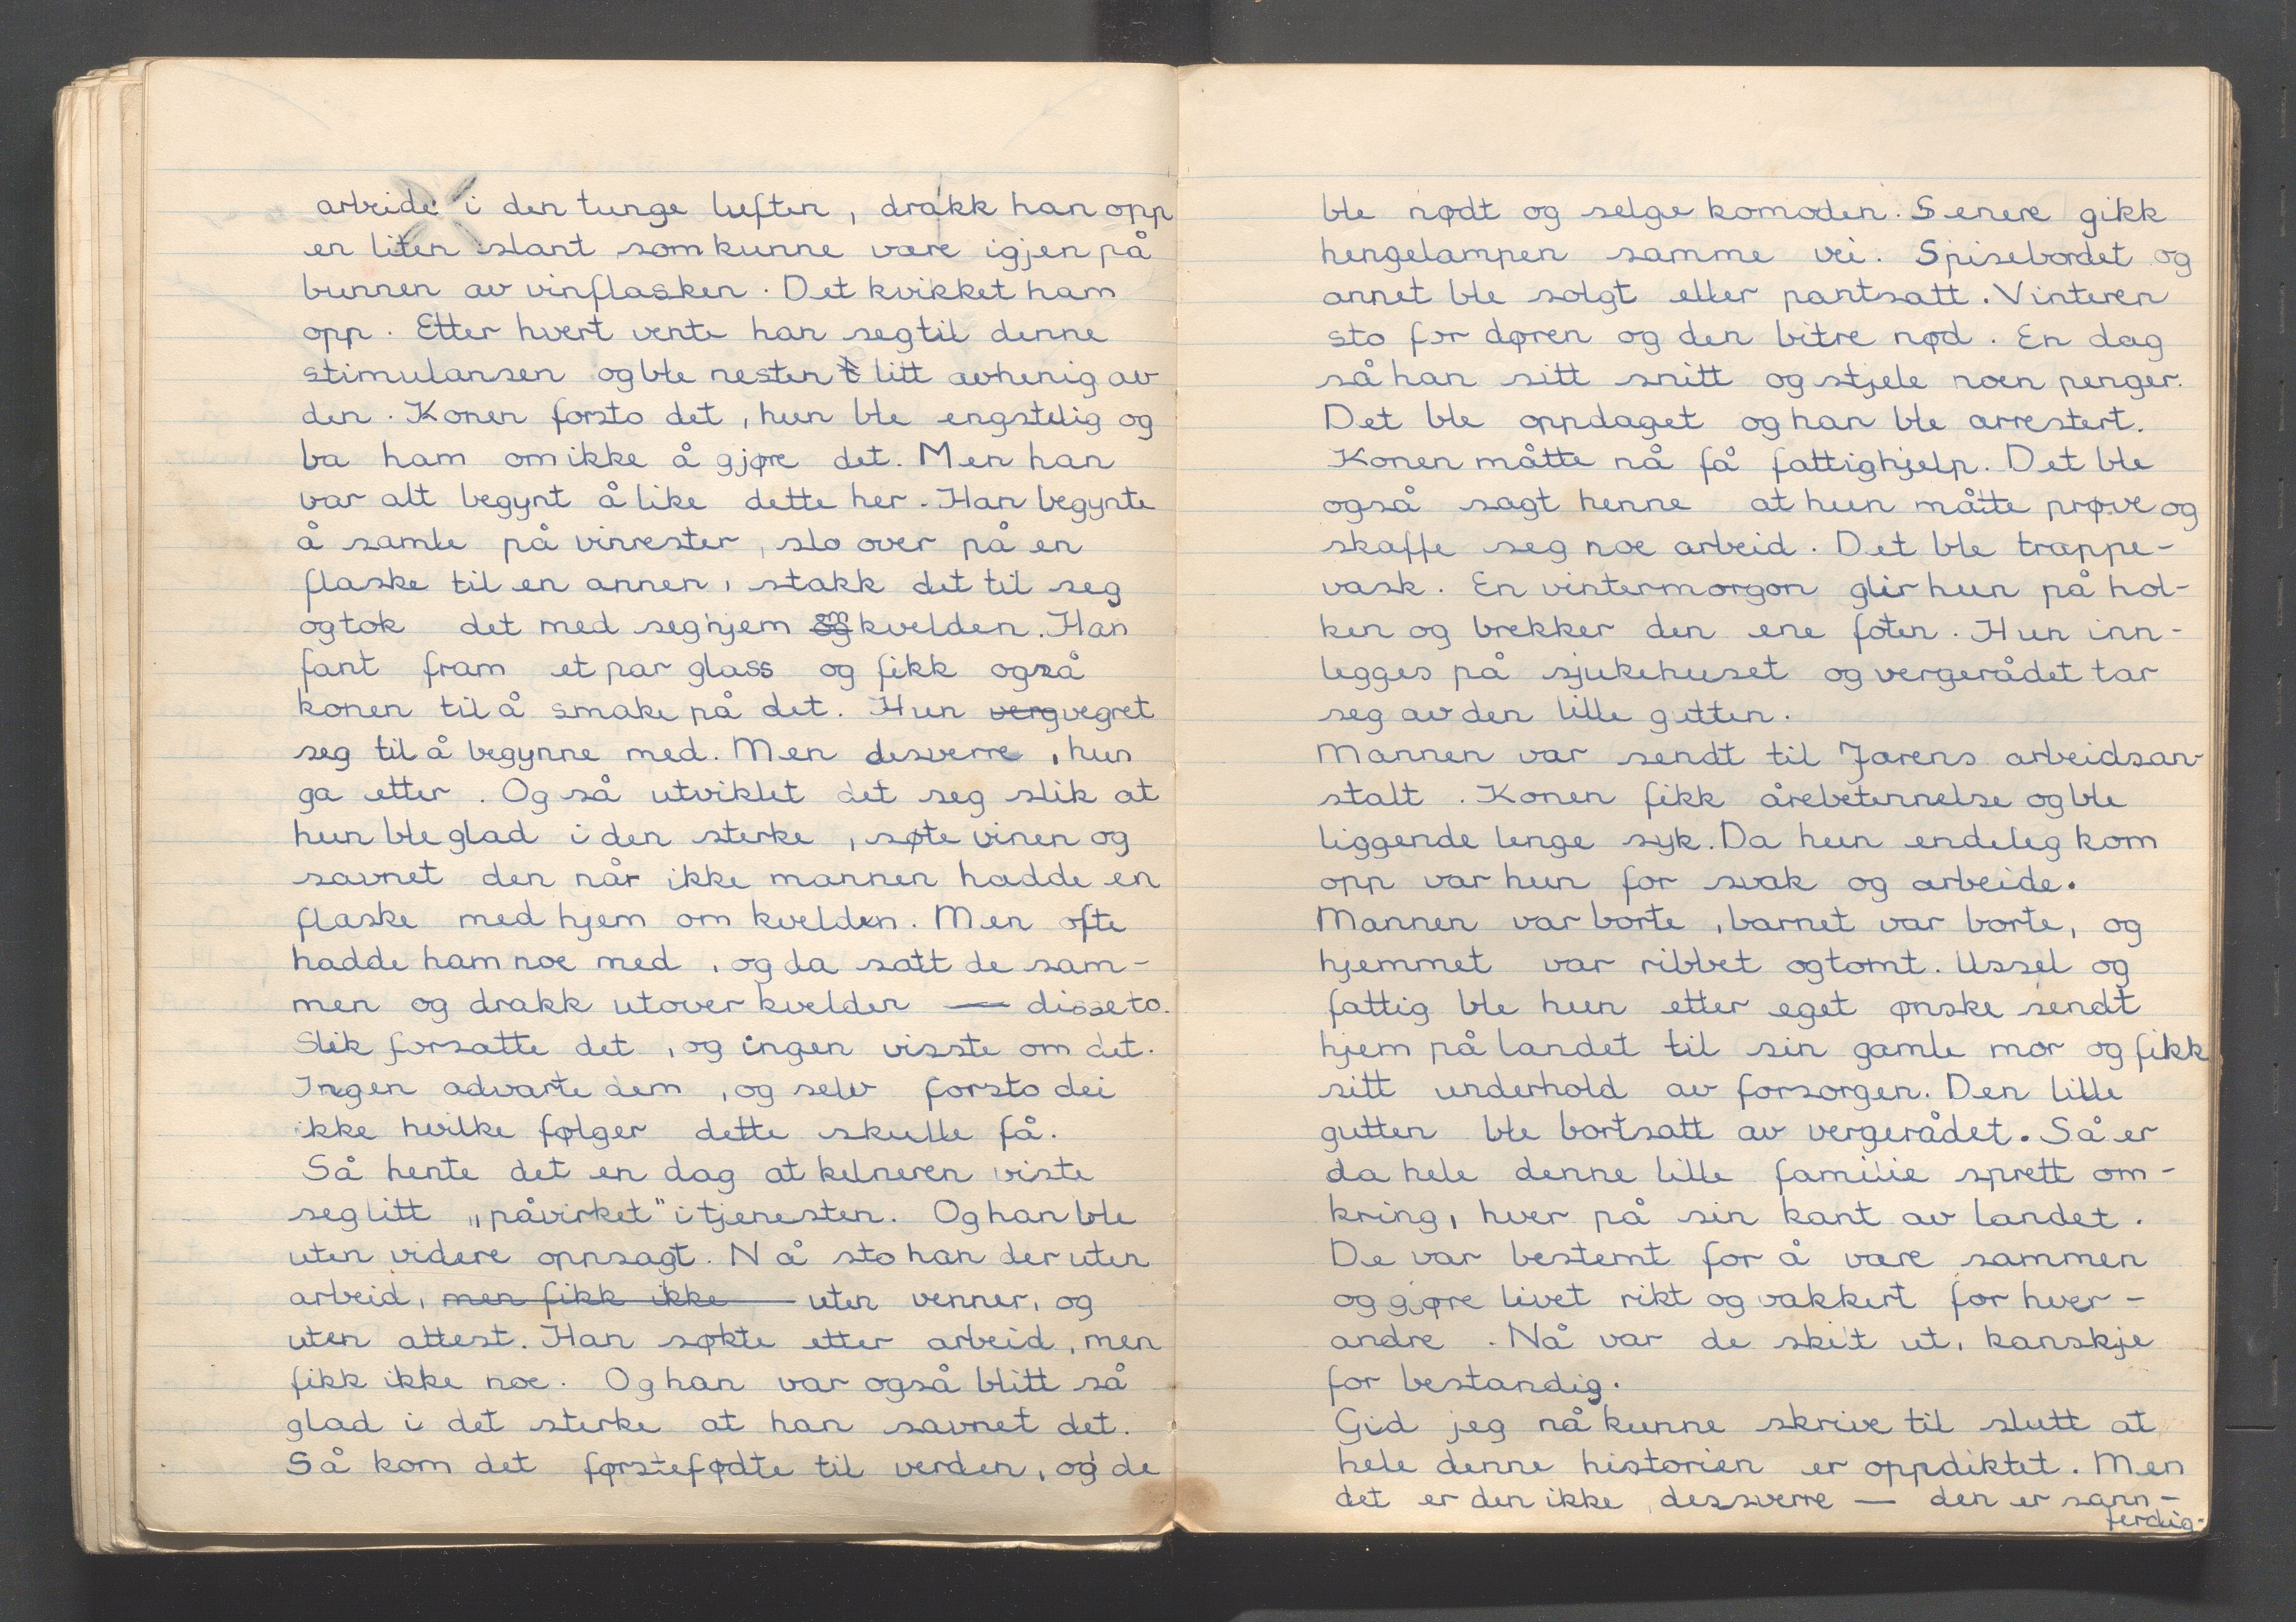 arbeide i den tunge luften, drakk han opp
en liten slant som kunne være igjen på
bunnen av vinflasken. Det kvikket ham
opp. Etter hvert vente han seg til denne
stimulansen og ble nesten litt avhenig av
den. Konen forsto det, hun ble engstelig og
ba ham om ikke å gjøre det. Men han
var alt begynt å like dette her. Han begynte
å samle på vinrester, slo over på en
flaske til en annen, stakk det til seg
og tok det med seg hjem om kvelden. Han
fant fram et par glass og fikk også
konen til å smake på det. Hun verg vegret
seg til å begynne med. Men desverre, hun
ga etter. Og så utviklet det seg slik at
hun ble glad i den sterke, søte vinen og
savnet den når ikke mannen hadde en
flaske med hjem om kvelden. Men ofte
hadde ham noe med, og da satt de sam-
men og drakk utover kvelden — disse to.
Slik forsatte det, og ingen visste om det.
Ingen advarte dem, og selv forsto dei
ikke hvilke følger dette skulle få.
Så hente det en dag at kelneren viste
seg litt „påvirket" i tjenesten. Og han ble
uten videre oppsagt. Nå sto han der uten
arbeid, men fikk ikke uten venner, og
uten attest. Han søkte etter arbeid, men
fikk ikke noe. Og han var også blitt så
glad i det sterke at han savnet det.
Så kom det førstefødte til verden, og de
ble nødt og selge komoden. Senere gikk
hengelampen samme vei. Spisebordet og
annet ble solgt eller pantsatt. Vinteren
sto for døren og den bitre nød. En dag
så han sitt snitt og stjele noen penger.
Det ble oppdaget og han ble arrestert.
Konen måtte nå få fattighjelp. Det ble
også sagt henne at hun måtte prøve og
skaffe seg noe arbeid. Det ble trappe-
vask. En vintermorgon glir hun på hol-
ken og brekker den ene foten. Hun inn-
legges på sjukehuset og vergerådet tar
seg av den lille gutten.
Mannen var sendt til Jærens arbeidsan-
stalt. Konen fikk årebetennelse og ble
liggende lenge syk. Da hun endeleg kom
opp var hun for svak og arbeide.
Mannen var borte, barnet var borte, og
hjemmet var ribbet og tomt. Ussel og
fattig ble hun etter eget ønske sendt
hjem på landet til sin gamle mor og fikk
sitt underhold av forsorgen. Den lille
gutten ble bortsatt av vergerådet. Så er
da hele denne lille familie sprett om-
kring, hver på sin kant av landet.
De var bestemt for å være sammen
og gjøre livet rikt og vakkert for hver-
andre. Nå var de skilt ut, kanskje
for bestandig.
Gid jeg nå kunne skrive til slutt at
hele denne historien er oppdiktet. Men
det er den ikke, dessverre — den er sann-
ferdig.